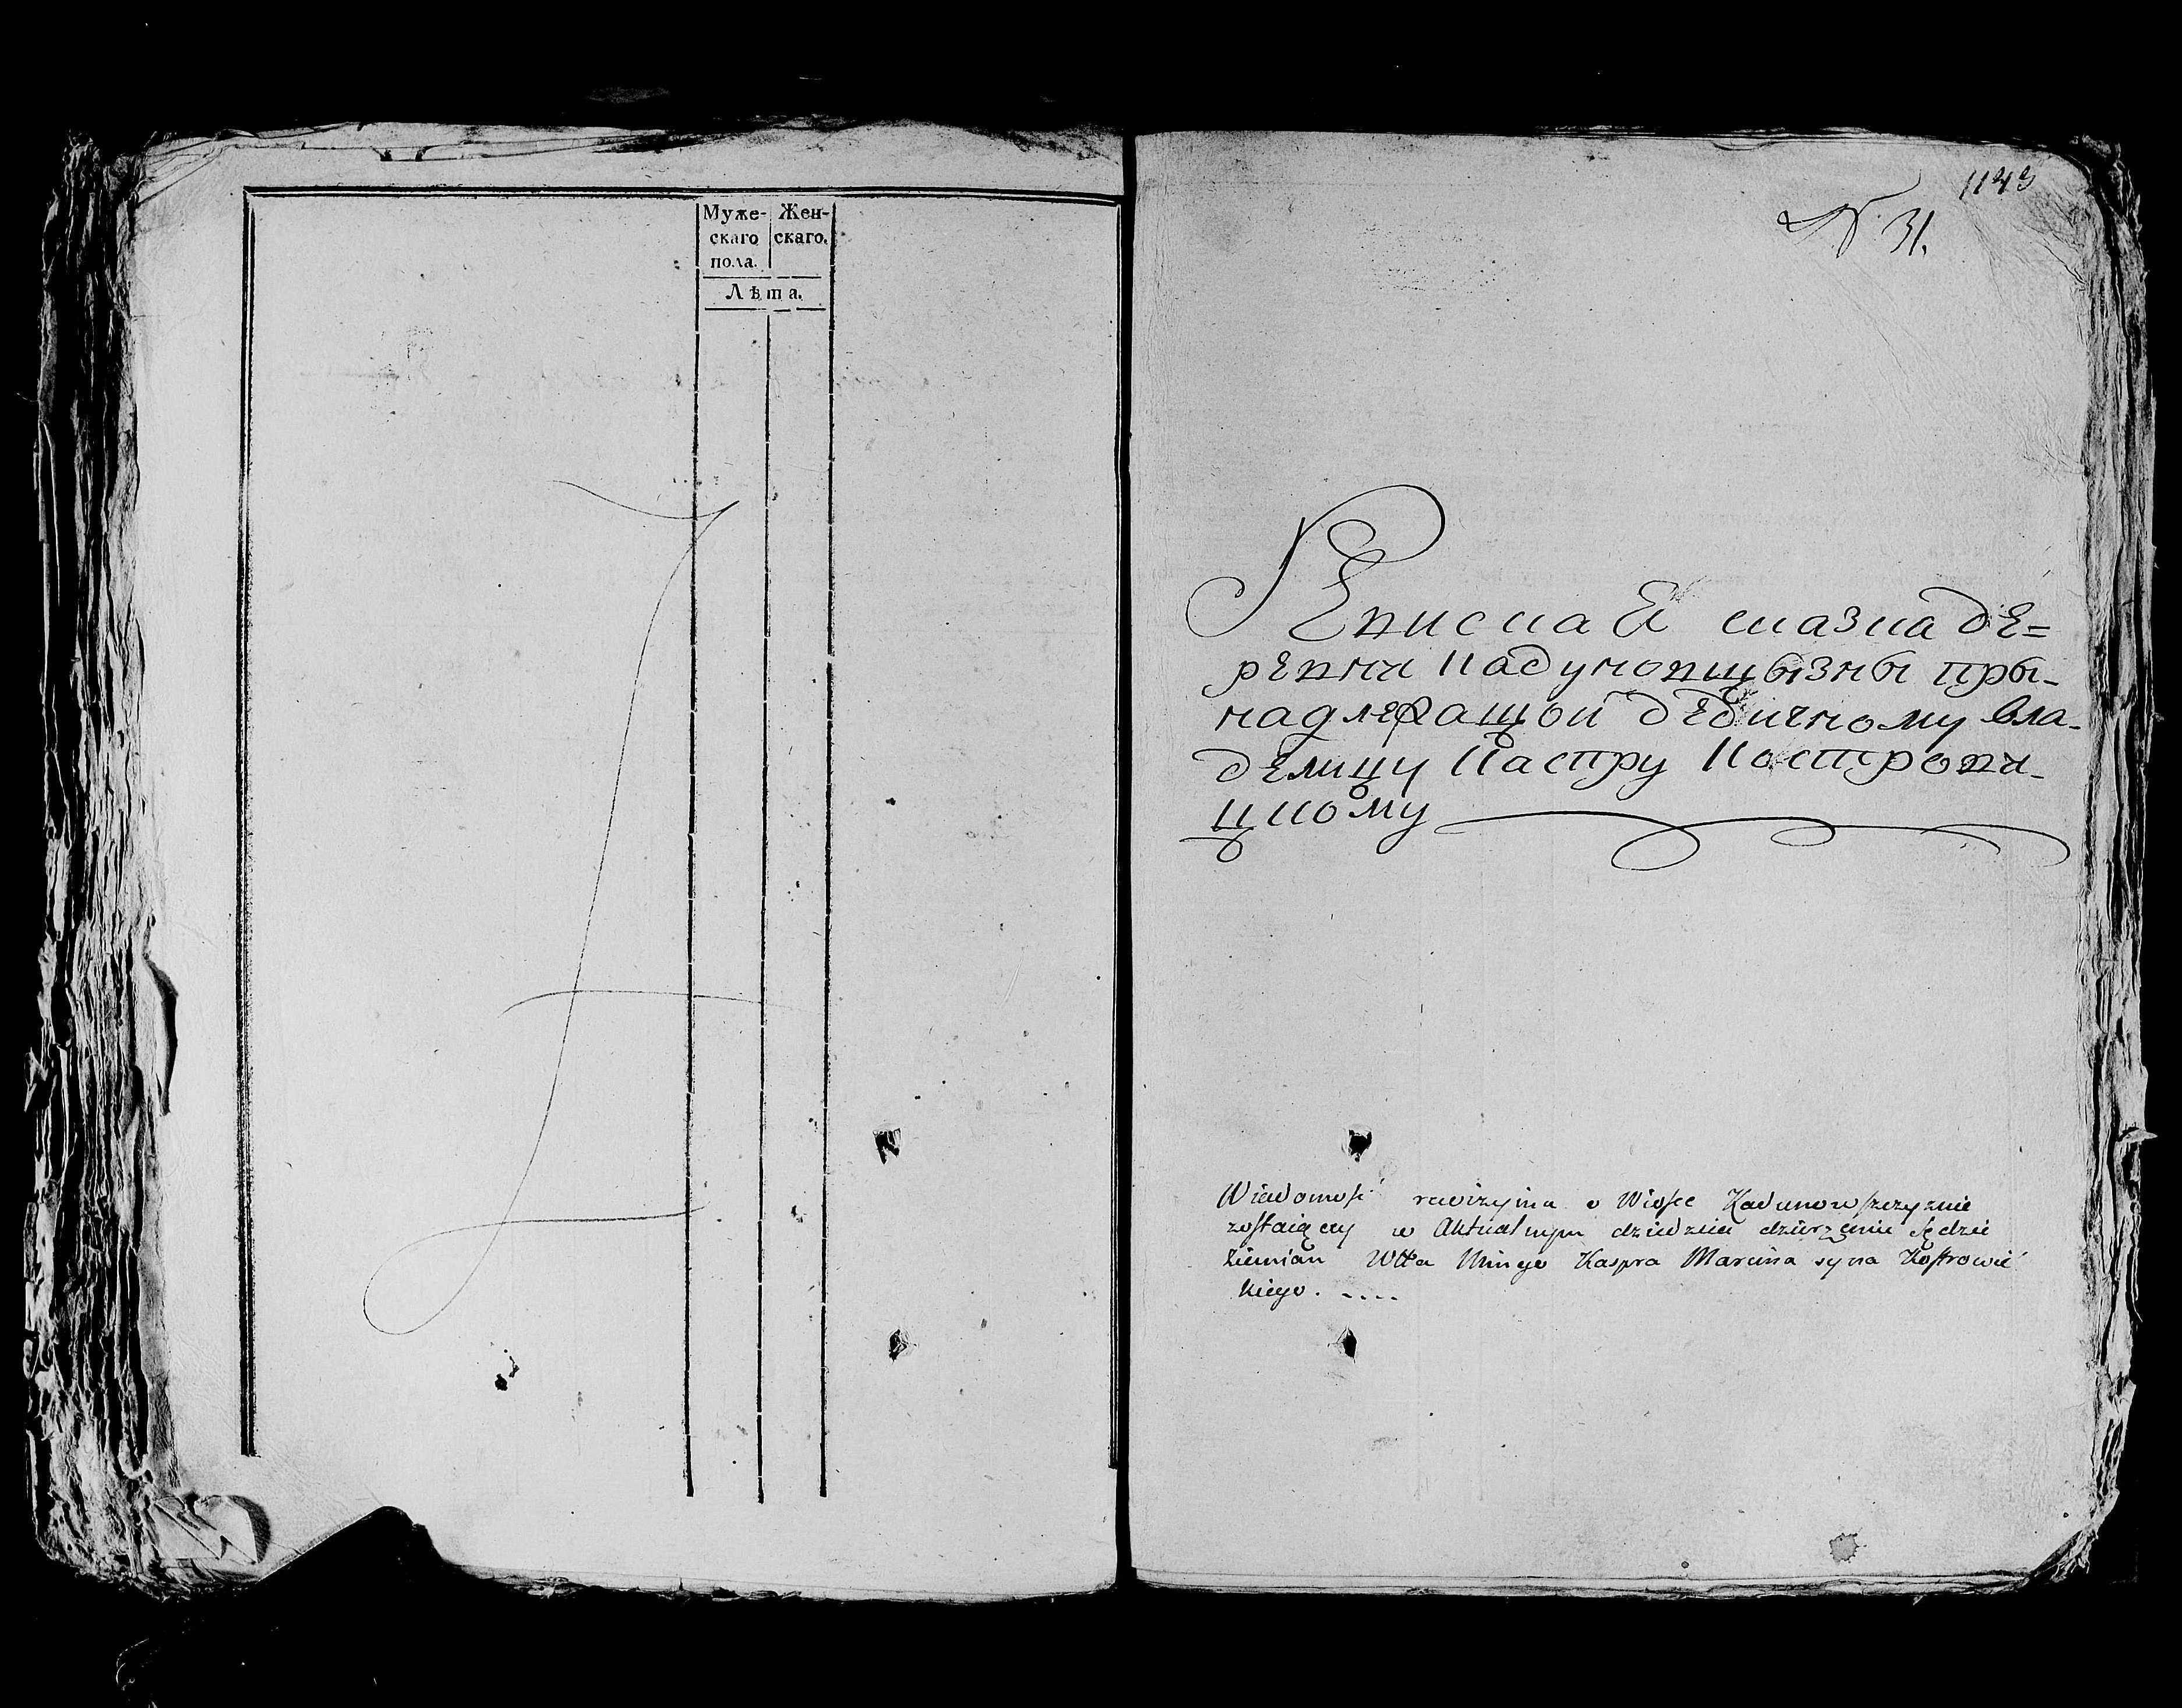 Муже- Жен-
скаго скаго.
пола.
Лѣта.
1143
N. 31.
РЕвиская сказка дЕ=
ревни Кадуновщызны пры-
надлежащой дедичному вла-
делцу Каспру Кострови-
цкому
Wiadomość rewizyina o Wiosce Kadunowszczyznie
zostaiącey w Aktualnym dziedzict dzierzeniu Sędzie
Ziemian Wtta Mińgo Kaspra Marcina syna Kostrowic
kiego. - . . . .